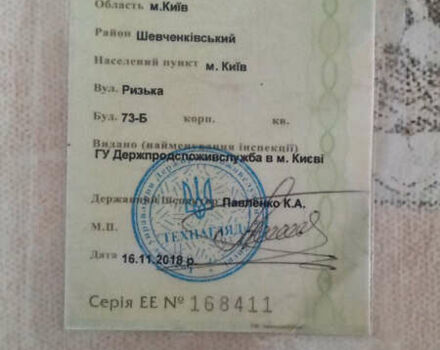 Область м.Київ
Район Шевченківський
Населений пункт м. Київ
Вул. Ризька
Буд. 73-Б корп. кв.
Видано (найменування інспекції)
ГУ Держпродспоживслужба в м. Києві
Державний Інспектор Павленко К.А.
М.П.
ТЕХНАГЛЯД
Дата 16.11.2018 р.
Серія ЕЕ № 168411